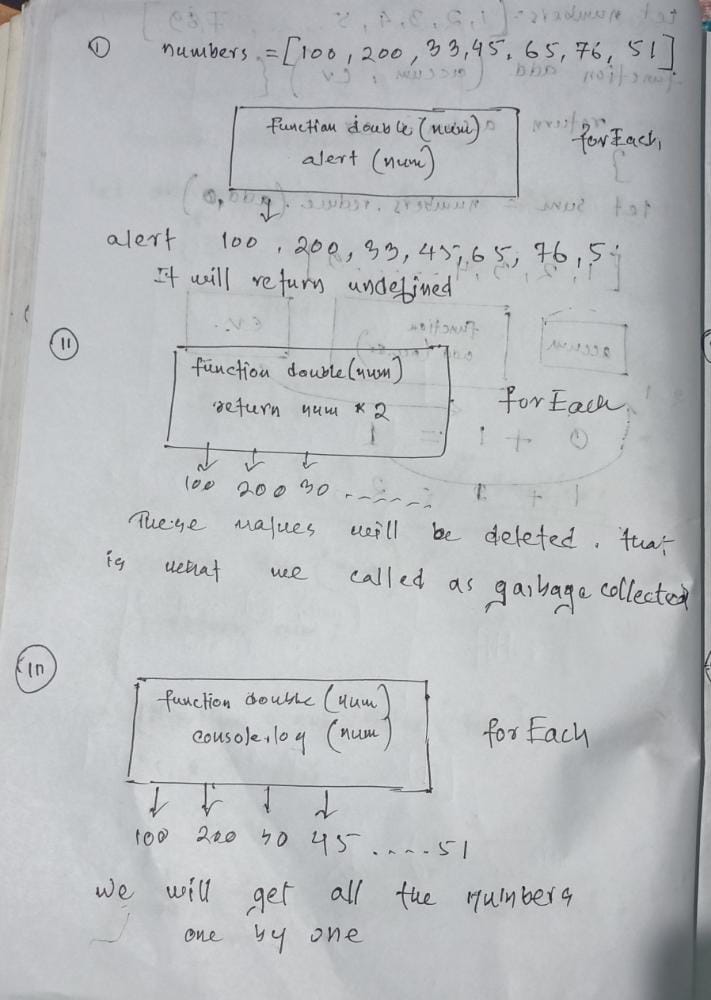 ① numbers = [100, 200, 33, 45, 65, 76, 51]
function double (num)
alert (num)
forEach,
alert 100, 200, 33, 45, 65, 76, 5
It will return undefined
②
function double (num)
return num * 2
forEach
100 200 30 .......
These values will be deleted. that
is what we called as garbage collected
③
function double (num)
console.log (num)
forEach
100 200 30 45 ..... 51
We will get all the numbers
one by one